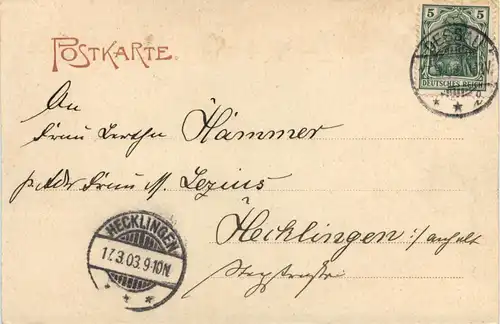 POSTKARTE.
5 5
DEUTSCHES REICH
DESSAU
An
Frau Bertha Hämmer
p. Adr Frau M. Lezius
Hecklingen i/ anhalt
HECKLINGEN
17.3.03.9-10N.